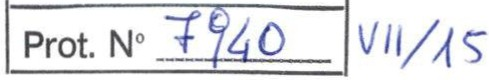 Prot. N° 7940 VII/15